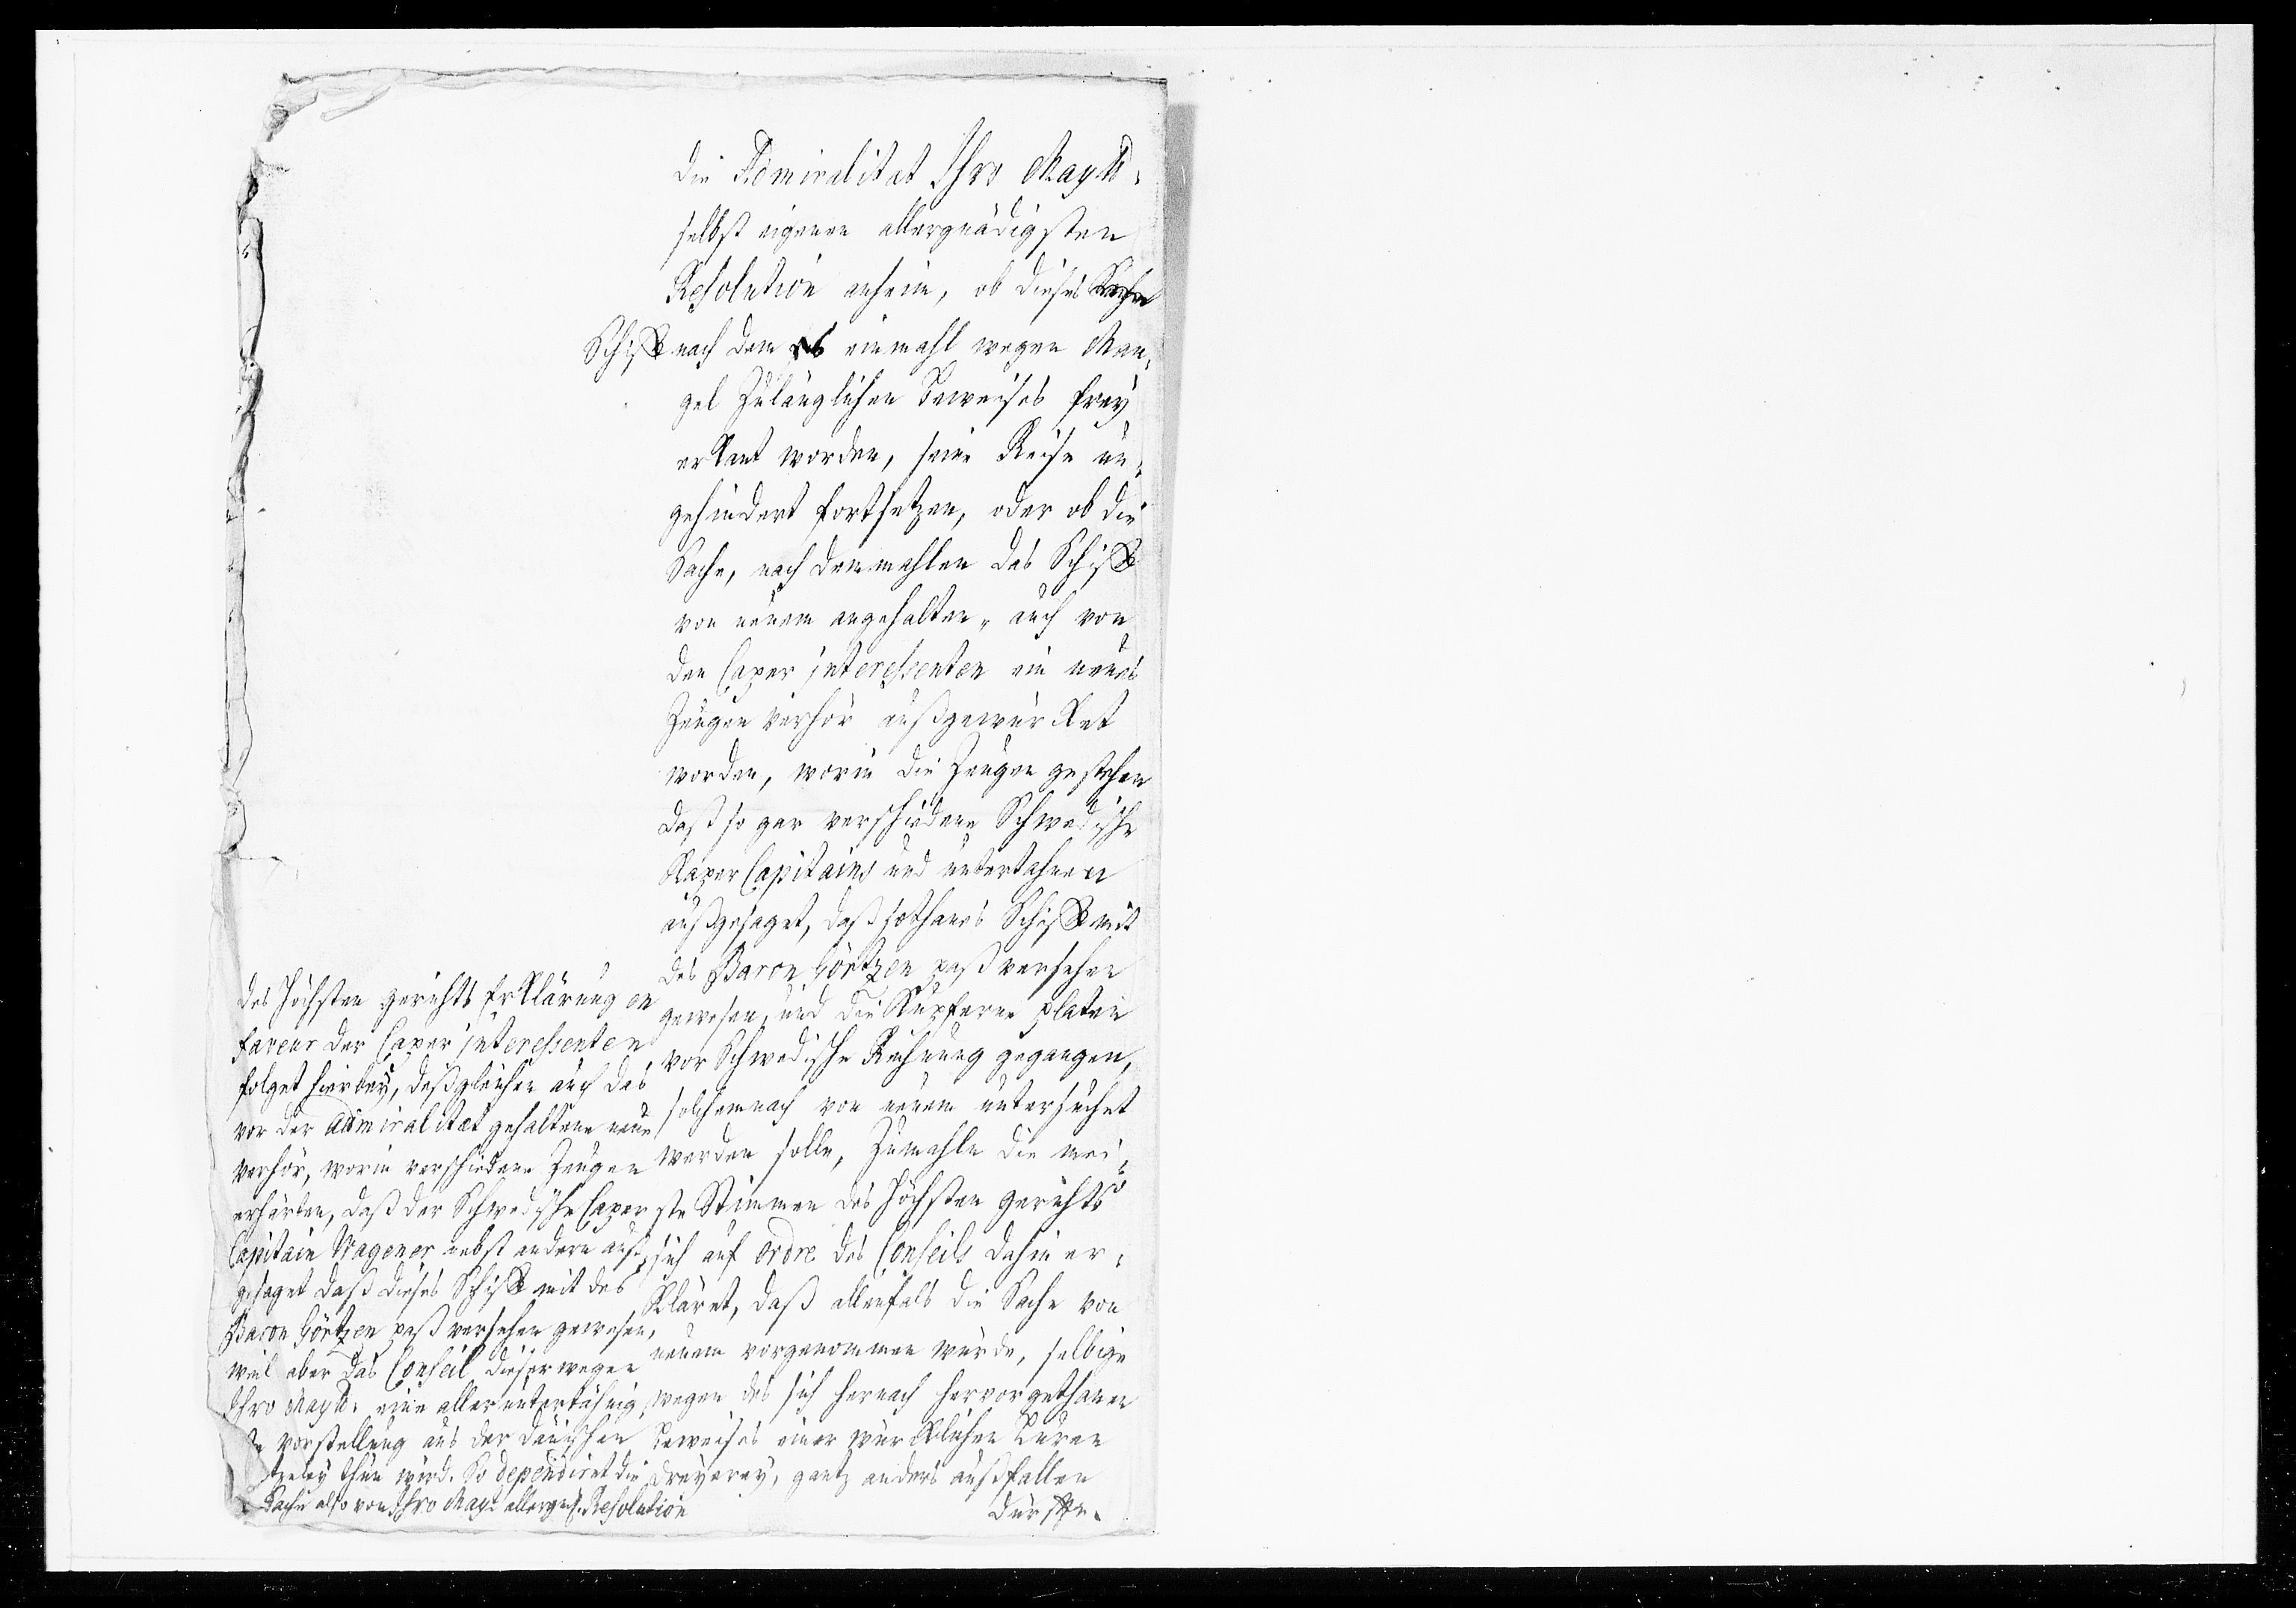 die Admiralitat Ihro Maytt.
selbst eigenen allergnädigsten
Resolution anheim, ob dieses
Schiff nach dem es einmahl wegen Man¬
gel Zulänglichen beweises frey
erkant worden, seine Reise un¬
gehindert fortsetzen, oder ob die
Sache, nach demmahlen das Schiff
von neuem angehalten, auch von
den Caper jnteressenten ein neues
Zeugen verhör außgewürket
worden, worin die Zeugen gestehen
daß so gar verschiedene Schwedische
Kaper Capitains und untertahnen
außgesaget, daß sothanes Schiff mit
des Baron Görtzen paß versehen
gewesen, und die Kupferne platen
vor Schwedische Rechnung gegangen,
solchemnach von neuem untersuchet
werden solle, Zumahlen die mei¬
ste Stimmen des Höchsten gerichts
sich auf ordre des Conseils dahin er¬
kläret, daß allenfals die Sache von
neuem vorgenommen würde, selbige
wegen des sich hernach hervorgethanen
beweises einer würklichen Luren
dreyerey, gantz anders außfallen
dürffte.
des Höchsten gerichts Erklärung en
faveur der Caper jnteressenten
folget hierbey, deßgleichen auch das
vor der Admiralitæt gehaltene neue
verhör, worin verschiedene Zeugen
erhärten, daß der Schwedische Caper
Capitain Wagener nebst andern auß¬
gesaget daß dieses Schiff mit des
Baron Görtzen paß versehen gewesen,
weil aber das Conseil dieserwegen
Ihro Maytt. eine alleruntertähnig
ste vorstellung aus der dänischen
tzeley thun wird. So dependiret die
Sache also von Ihro Mayt allergn. Resolution